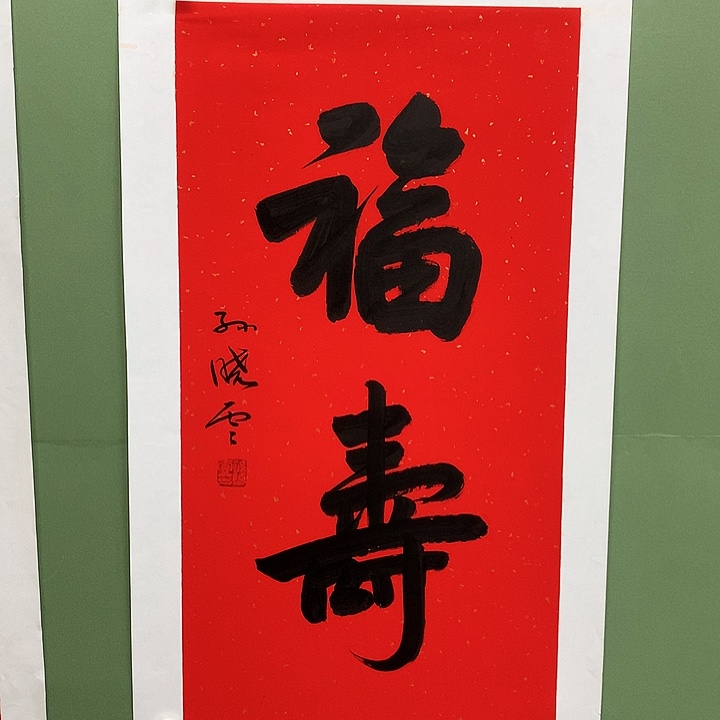 福壽
孙晓雲